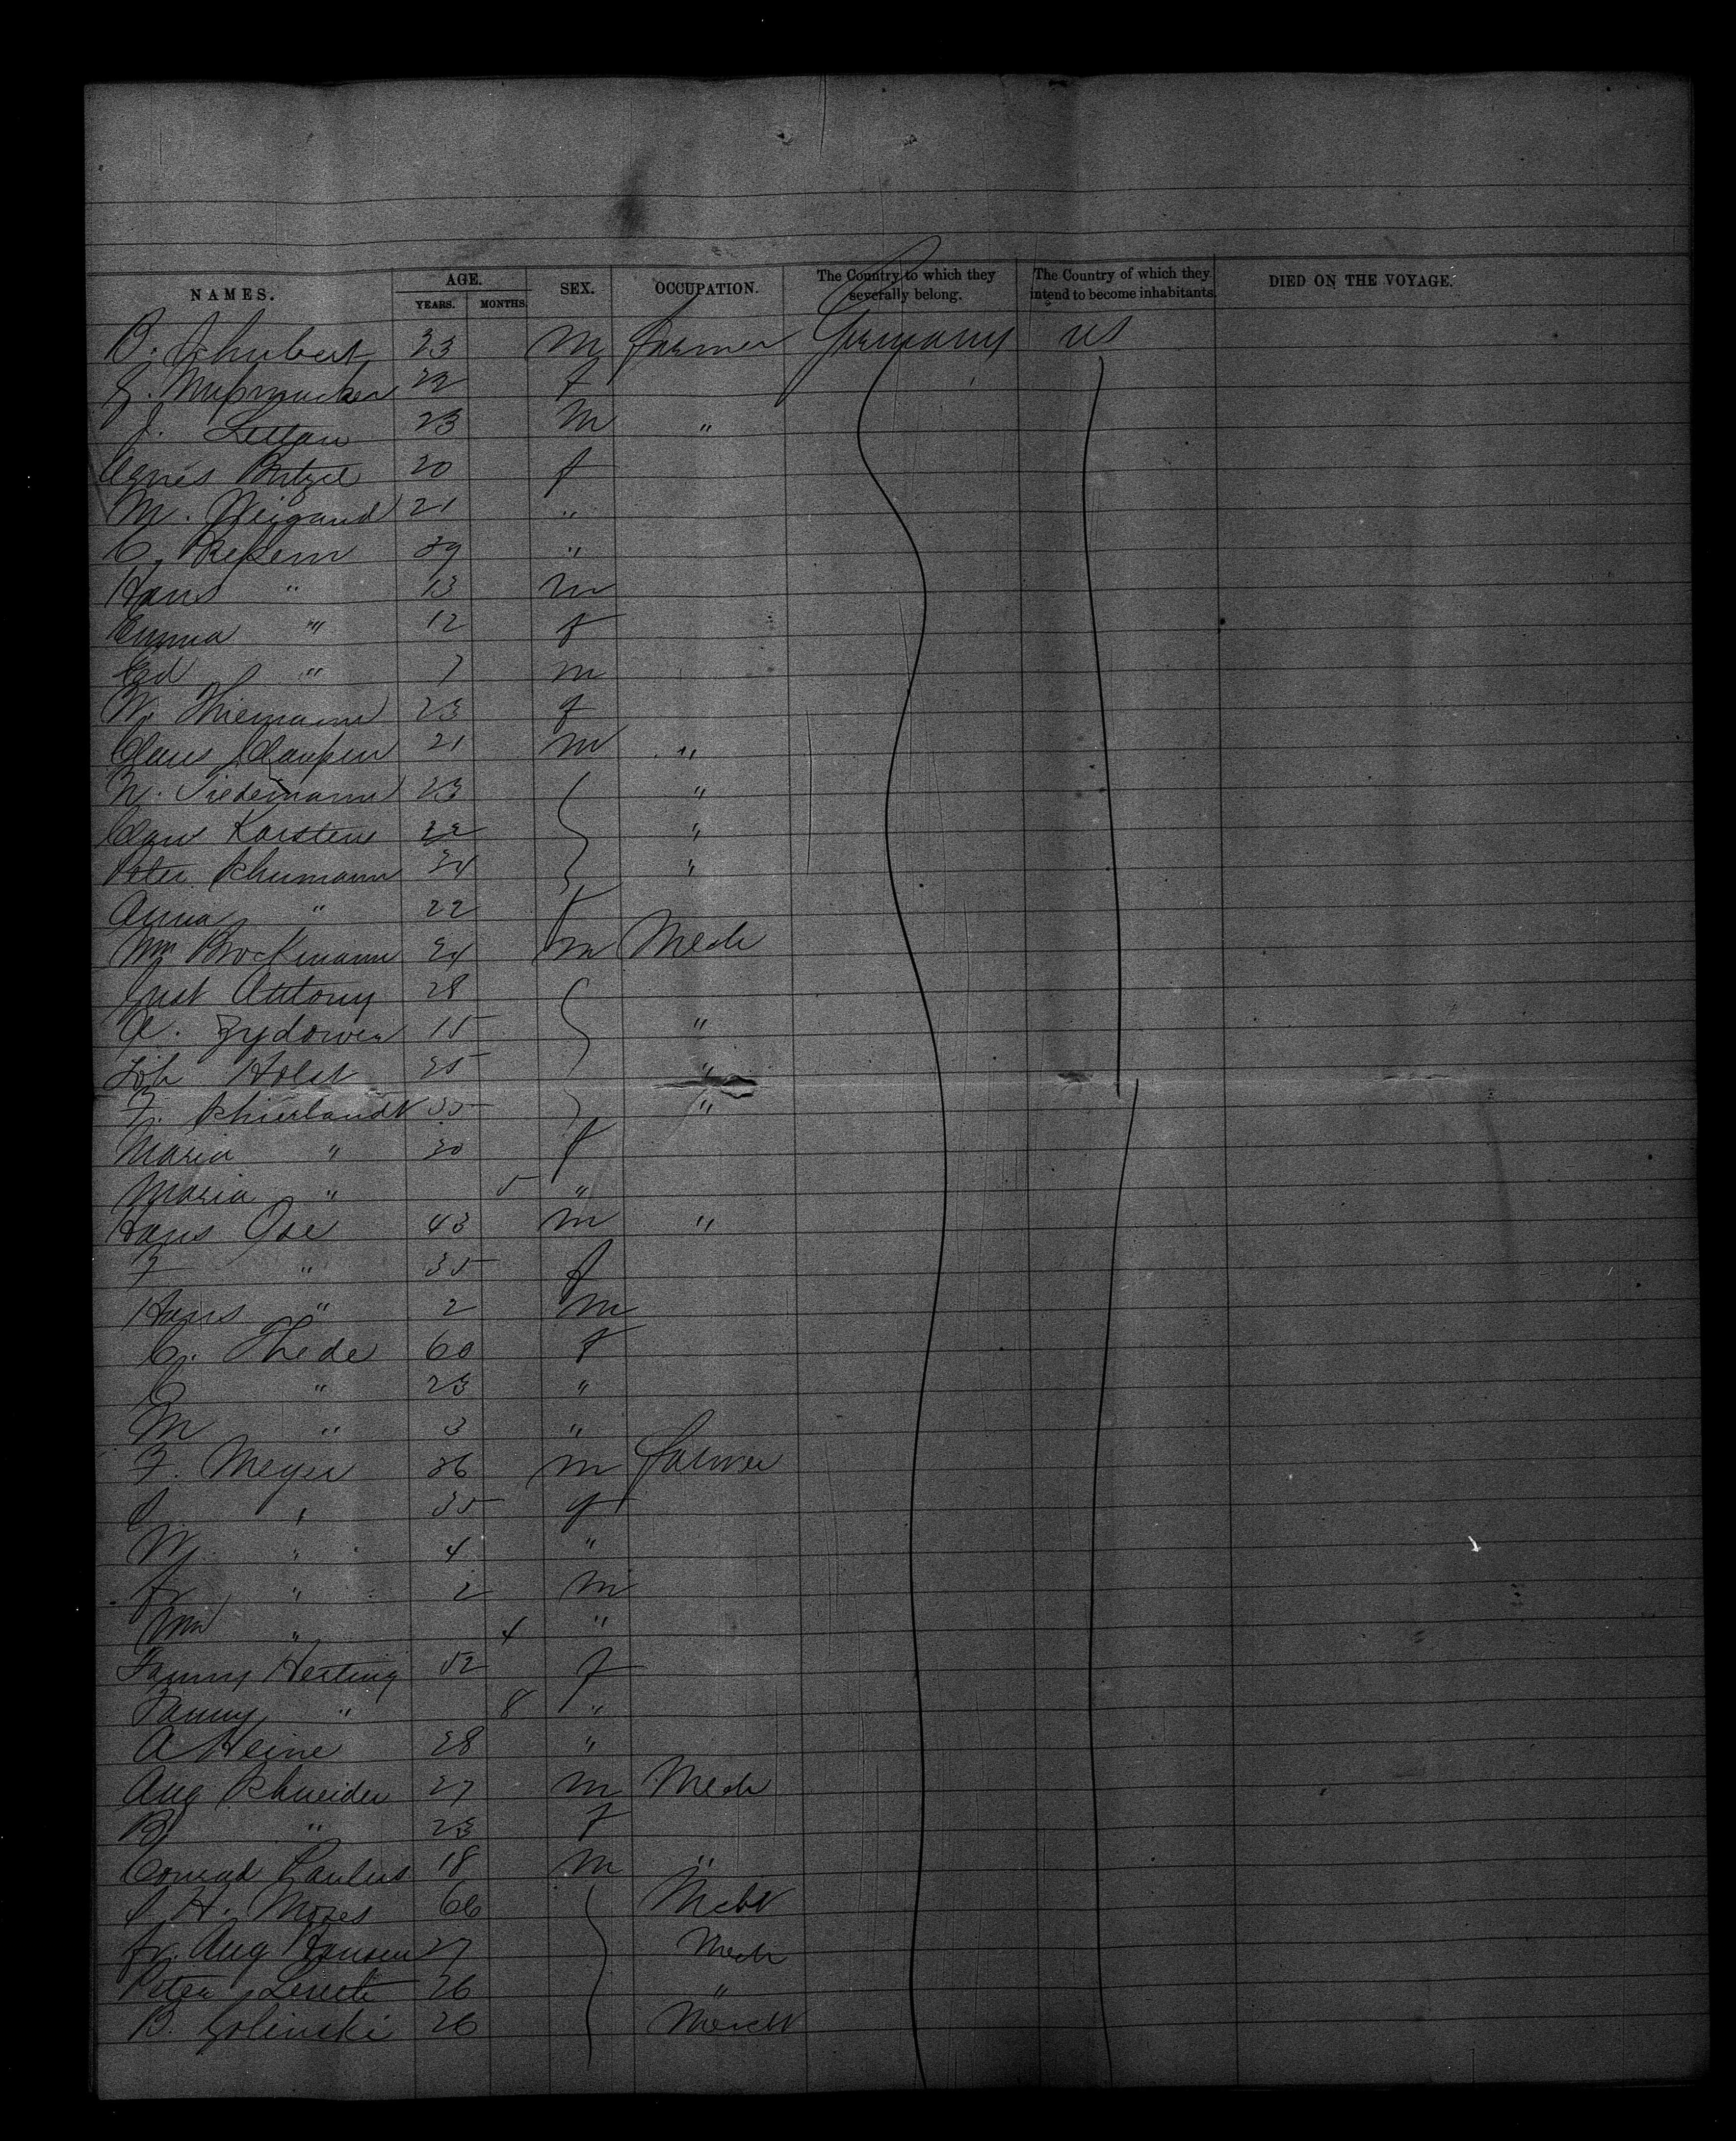 NAMES. AGE. YEARS. MONTHS. SEX. OCCUPATION. The Country to which they severally belong. The Country of which they intend to become inhabitants. DIED ON THE VOYAGE.
B. Schubert 23 M farmer Germany US
22 f
J. 23 M "
Agnes 20 f
M. Weigand 21 "
C. 39 "
Hans " 13 m
Emma " 12 f
Ed " 7 m
W. Thiemann 23 f
Claus Claussen 21 m "
N. Tiedemann 23 "
Claus Karstens 22 "
Peter Schumann 24 "
Anna " 22 f
Wm Brockmann 24 m Mech
Gust Antony 28
A. Zydower 15 "
Joh Holst 25 "
F. Schierlandt 35 "
Maria " 30 f
Maria " 5 "
Hans Ose 43 m "
F " 35 f
Hans " 2 m
C. Thede 60 f
C " 23 "
M " 3 "
F. Meyer 36 m farmer
" 35 f
W " 4 "
Fr " 2 m
Wm " 4 "
Fanny Herting 52 f
Fanny " 8 "
A Heine 28 "
Aug Schneider 27 m Mech
B " 23 f
Conrad Paulus 18 m "
H. Moses 66 Mcht
Fr. Aug Hansen 27 Mech
Peter 26 "
B. Golinski 26 Mercht